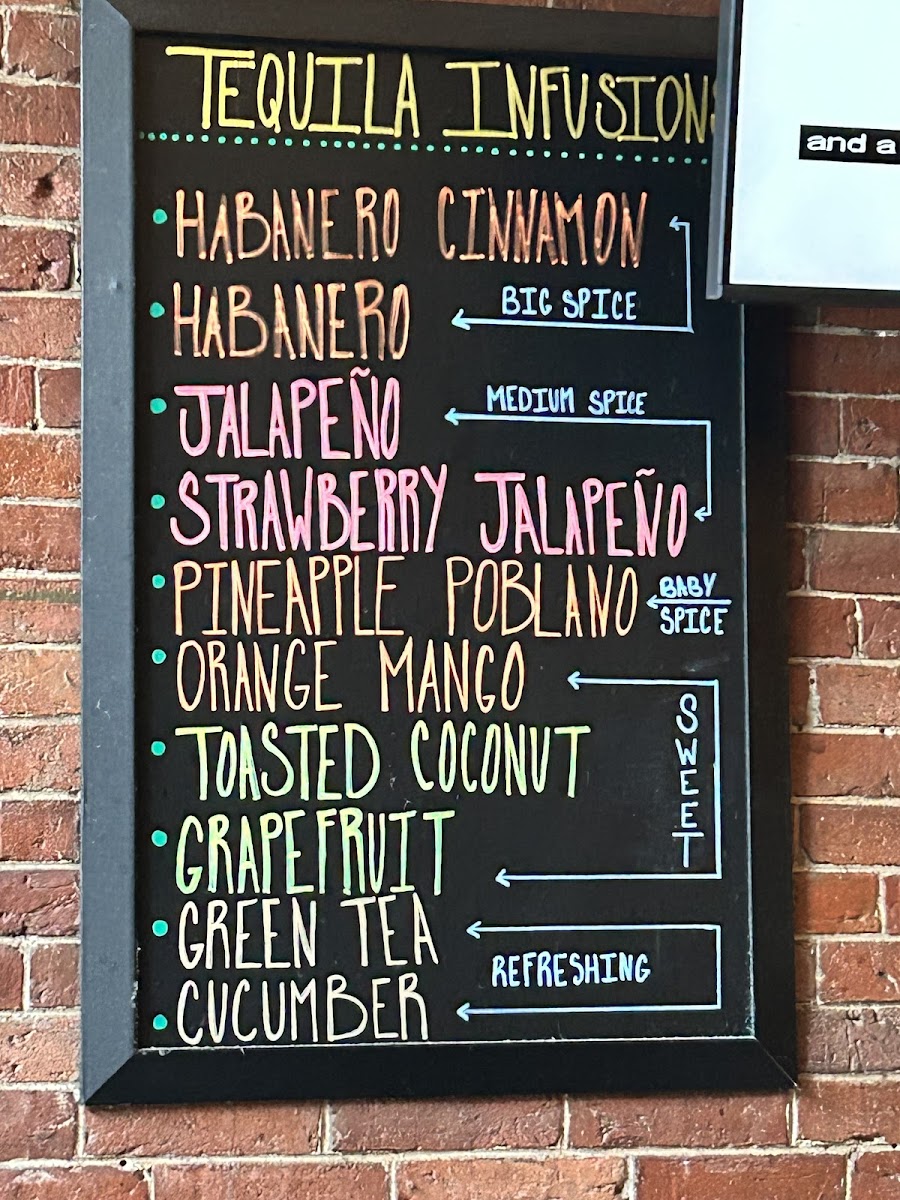 TEQUILA INFUSIONS
and a
HABANERO CINNAMON
HABANERO
BIG SPICE
JALAPEÑO
MEDIUM SPICE
STRAWBERRY JALAPEÑO
PINEAPPLE POBLANO
BABY
SPICE
ORANGE MANGO
SWEET
TOASTED COCONUT
GRAPEFRUIT
GREEN TEA
REFRESHING
CUCUMBER